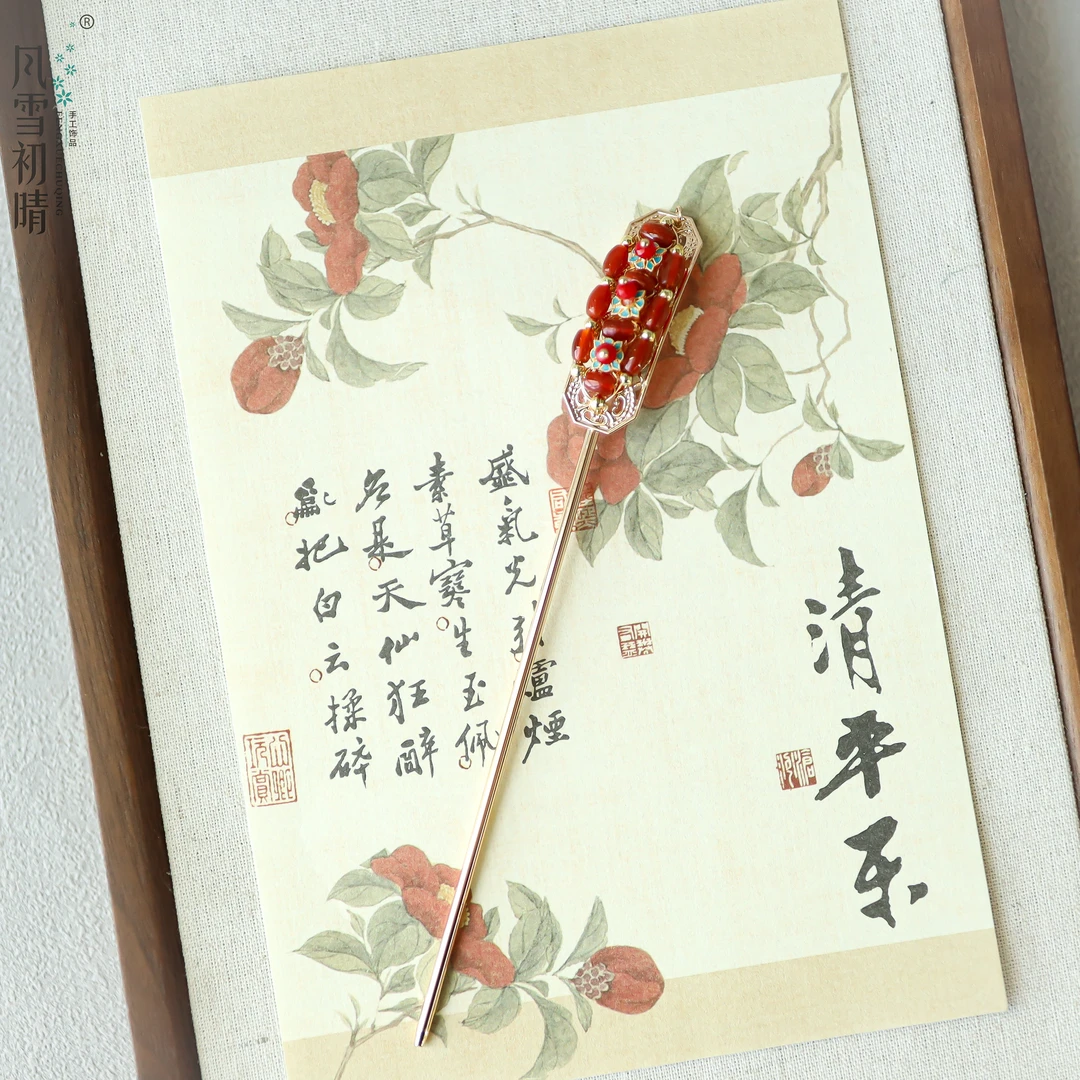 ®
风雪初晴
手工饰品
清平乐
盛氣光引爐煙
素草寒生玉佩
应是天仙狂醉
亂把白云揉碎